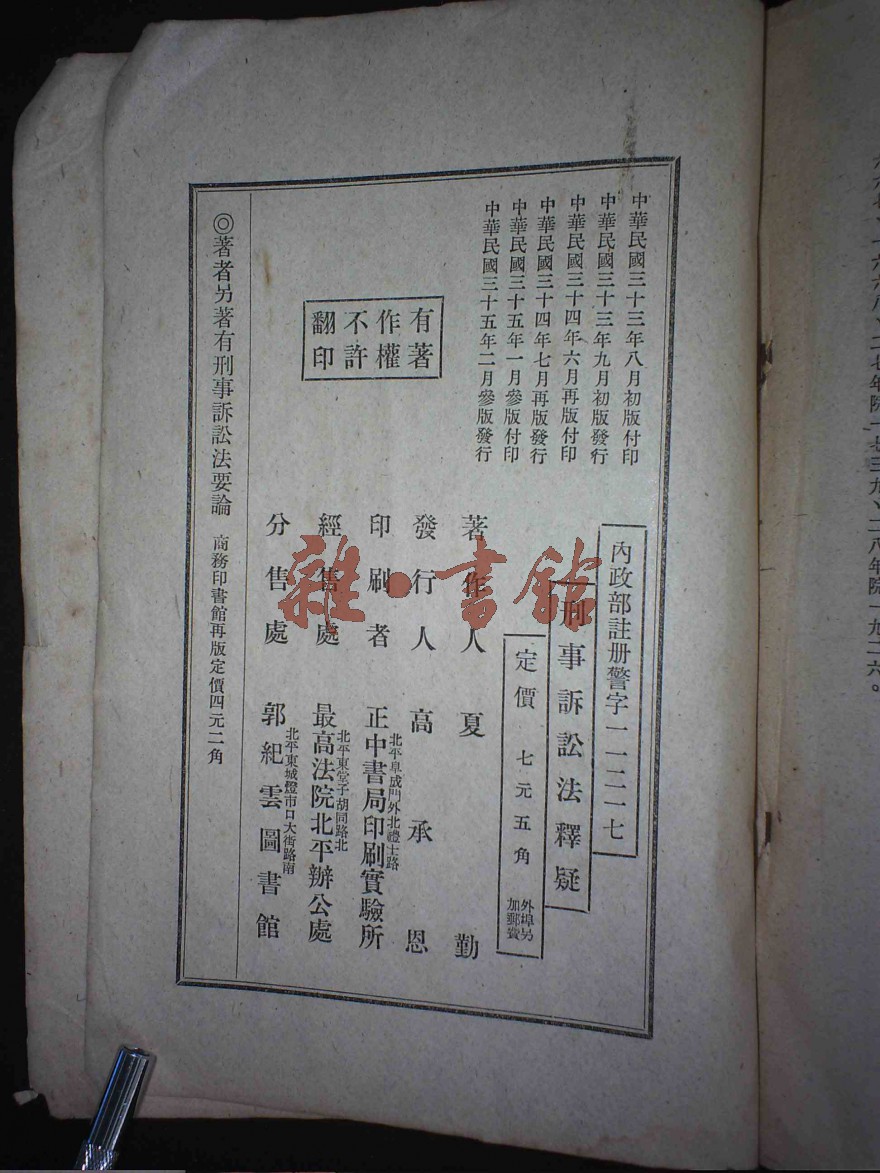 中華民國三十三年八月初版付印
中華民國三十三年九月初版發行
中華民國三十四年六月再版付印
中華民國三十四年七月再版發行
中華民國三十五年一月參版付印
中華民國三十五年二月參版發行
有著
作權
不許
翻印
內政部註册警字一一二一七
刑事訴訟法釋疑
定價 七元五角 外埠另加郵費
著作人 夏勤
發行人 高承恩
印刷者 北平阜成門外北禮士路
正中書局印刷實驗所
經售處 北平東堂子胡同路北
最高法院北平辦公處
分售處 北平東城燈市口大街路南
郭紀雲圖書館
◎著者另著有刑事訴訟法要論 商務印書館再版定價四元二角
雜·書館
二七年院一七三九、二八年院一九二六。